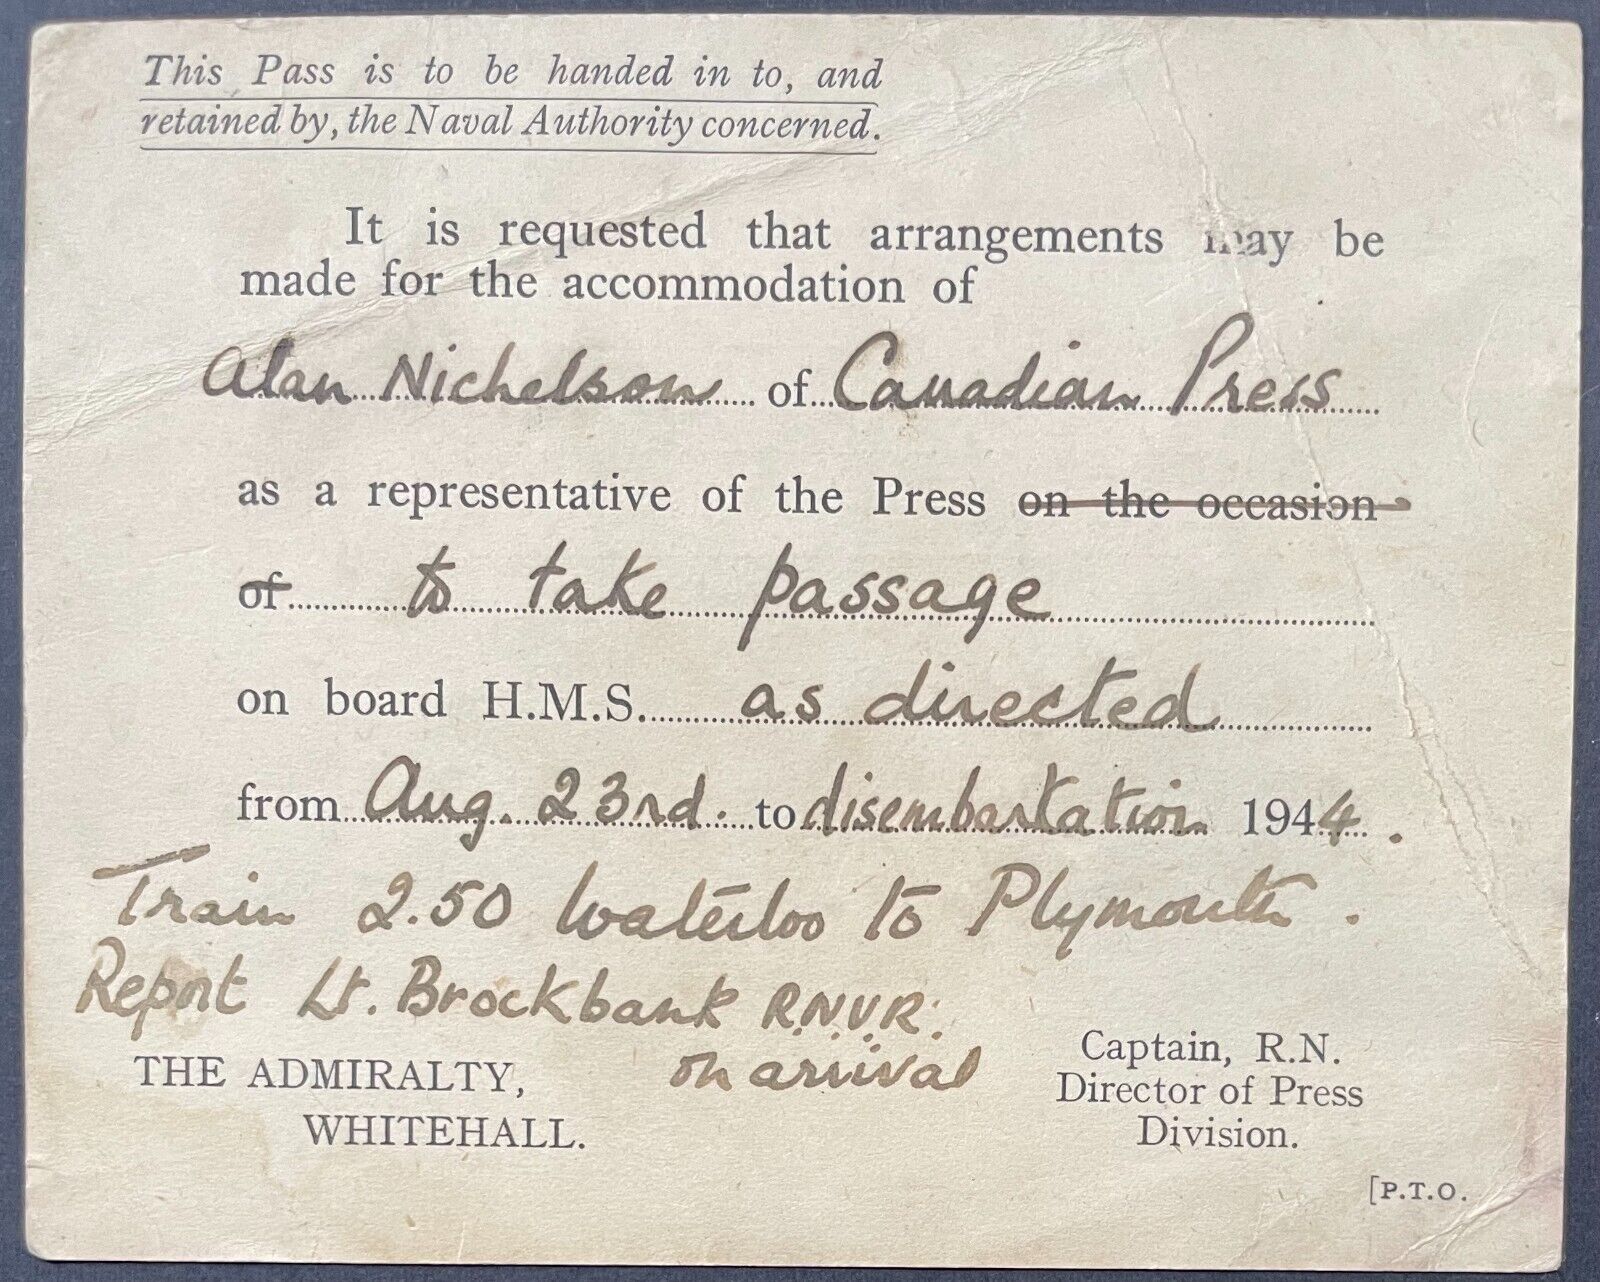 This Pass is to be handed in to, and
retained by, the Naval Authority concerned.
It is requested that arrangements may be
made for the accommodation of
Alan Nichelson of Canadian Press
as a representative of the Press on the occasion
of to take passage
on board H.M.S. as directed
from Aug. 23rd. to disembarkation 1944.
Train 2.50 Waterloo to Plymouth.
Report Lt. Brockbank R.N.V.R.
on arrival
THE ADMIRALTY,
WHITEHALL.
Captain, R.N.
Director of Press
Division.
[P.T.O.